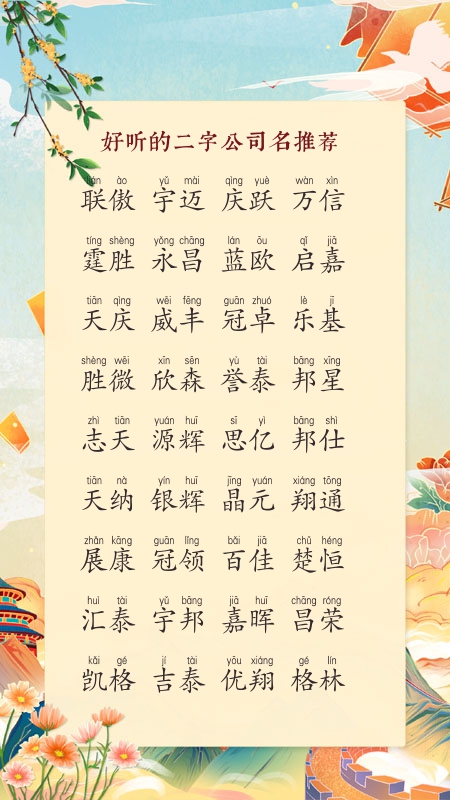 好听的二字公司名推荐
lián ào yǔ mài qìng yuè wàn xìn
联傲 宇迈 庆跃 万信
tíng shèng yǒng chāng lán ōu qǐ jiā
霆胜 永昌 蓝欧 启嘉
tiān qìng wēi fēng guān zhuó lè jī
天庆 威丰 冠卓 乐基
shèng wēi xīn sēn yù tài bāng xīng
胜微 欣森 誉泰 邦星
zhì tiān yuán huī sī yì bāng shì
志天 源辉 思亿 邦仕
tiān nà yín huī jīng yuán xiáng tōng
天纳 银辉 晶元 翔通
zhǎn kāng guān lǐng bǎi jiā chǔ héng
展康 冠领 百佳 楚恒
huì tài yǔ bāng jiā huī chāng róng
汇泰 宇邦 嘉晖 昌荣
kǎi gé jí tài yōu xiáng gé lín
凯格 吉泰 优翔 格林